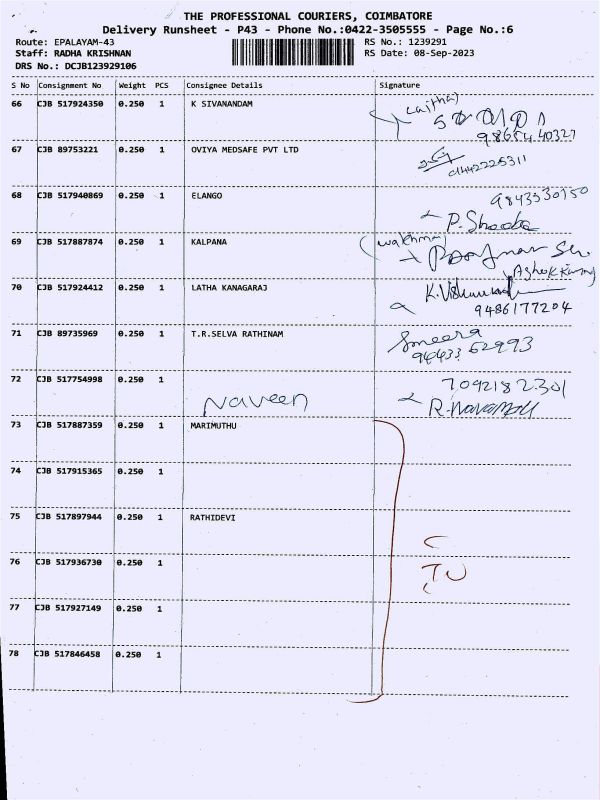 THE PROFESSIONAL COURIERS, COIMBATORE
Delivery Runsheet - P43 - Phone No.:0422-3505555 - Page No.:6
Route: EPALAYAM-43 RS No.: 1239291
Staff: RADHA KRISHNAN RS Date: 08-Sep-2023
DRS No.: DCJB123929106
S No Consignment No Weight PCS Consignee Details Signature
66 CJB 517924350 0.250 1 K SIVANANDAM
67 CJB 89753221 0.250 1 OVIYA MEDSAFE PVT LTD
68 CJB 517940869 0.250 1 ELANGO
P.
69 CJB 517887874 0.250 1 KALPANA
Ashok Kumar
70 CJB 517924412 0.250 1 LATHA KANAGARAJ
9486177204
71 CJB 89735969 0.250 1 T.R.SELVA RATHINAM
Sneera
72 CJB 517754998 0.250 1
7092182301
Naveen
73 CJB 517887359 0.250 1 MARIMUTHU
74 CJB 517915365 0.250 1
75 CJB 517897944 0.250 1 RATHIDEVI
76 CJB 517936730 0.250 1
77 CJB 517927149 0.250 1
78 CJB 517846458 0.250 1